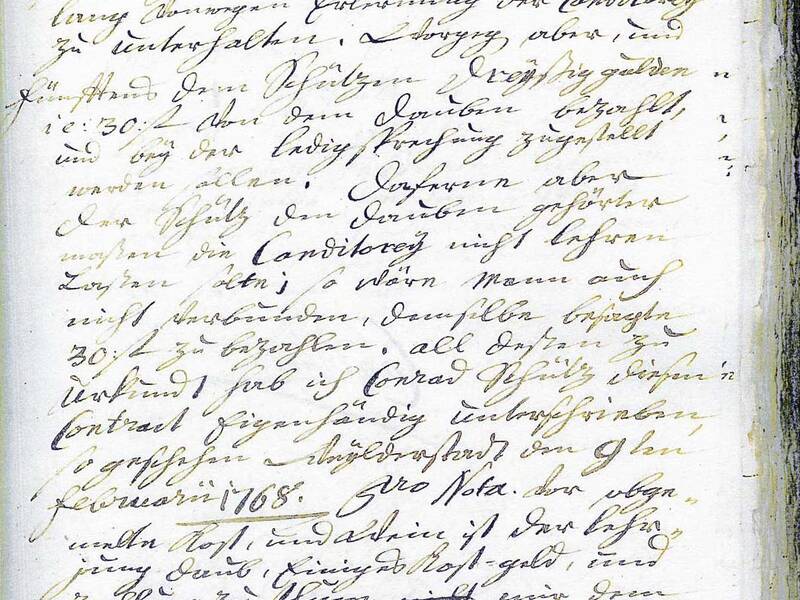 lang von wegen Erlernung der Conditorey
zu unterhalten. Worgeg aber, und
fünfftens dem Schützen Dreyßig gulden
i e: 30: f von dem Dauben bezahlt,
und bey der ledigsprechung zugestellt
werden sollen. Daferne aber
der Schütz den Dauben gehörter
maßen die Conditorey nicht lehren
Laßen solte; so wäre Mann auch
nicht verbunden, demselben besagte
30: f zu bezahlen. all deßen zu
Urkundt hab ich Conrad Schütz diesen
Contract Eigenhändig unterschrieben,
so geschehen Weylderstadt den 9ten
Februarii 1768. pro Nota. vor obge=
melte Kost, und Wein ist der lehr=
jung Daub, Einiges Kost-geld, und
zu nicht mir dem